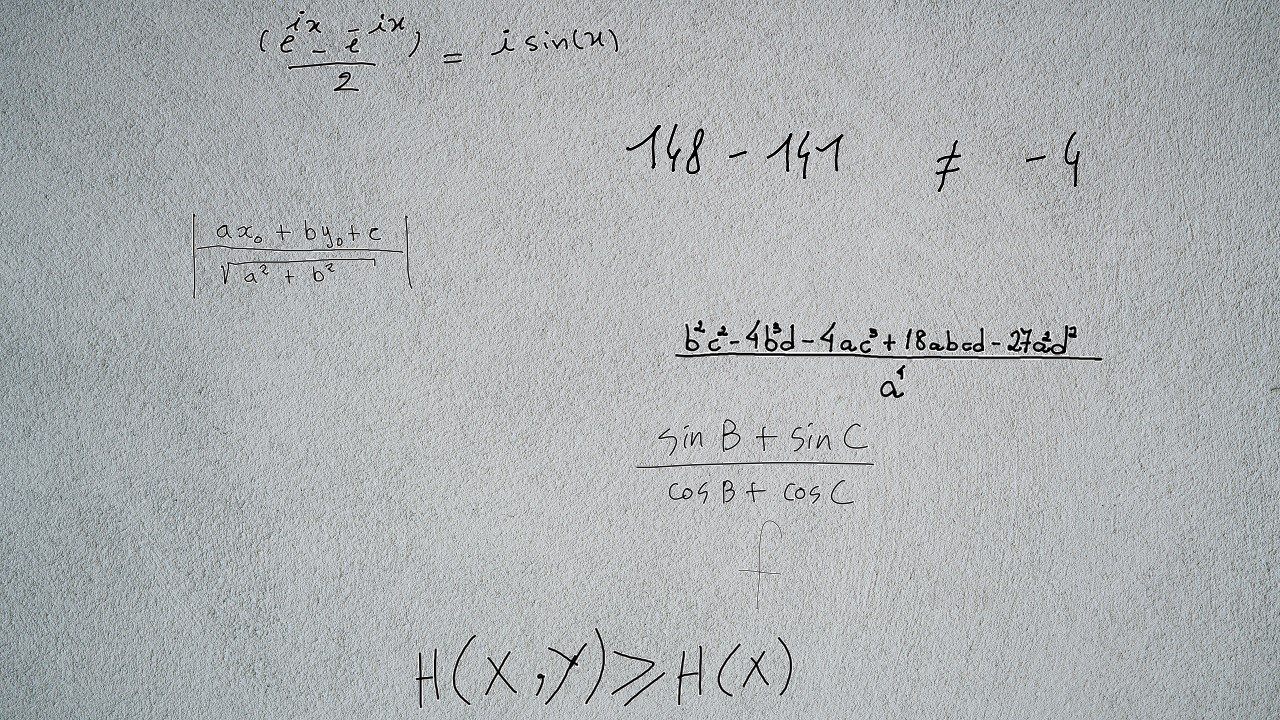 (e^{ix} - e^{-ix})/2 = i sin(x)
148 - 141 ≠ -4
|(ax₀ + by₀ + c)/√(a² + b²)|
(b²c² - 4b³d - 4ac³ + 18abcd - 27a²d²)/a⁴
(sin B + sin C)/(cos B + cos C)
f
H(X,Y) ≥ H(X)